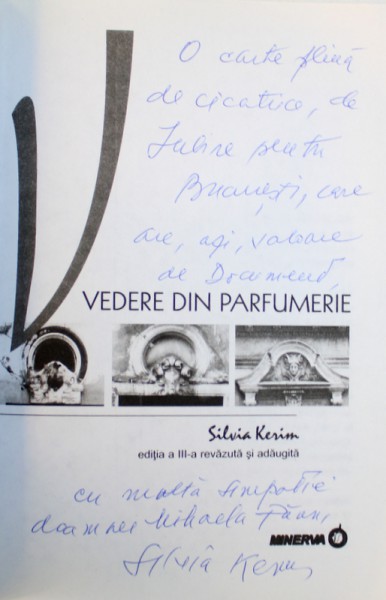 O carte plină
de cicatrice, de
Iubire pentru
București, care
are, azi, valoare
de Document,
VEDERE DIN PARFUMERIE
Silvia Kerim
ediția a III-a revăzută și adăugită
cu multă simpatie
doamnei Mihaela
MINERVA
Silvia Kerim